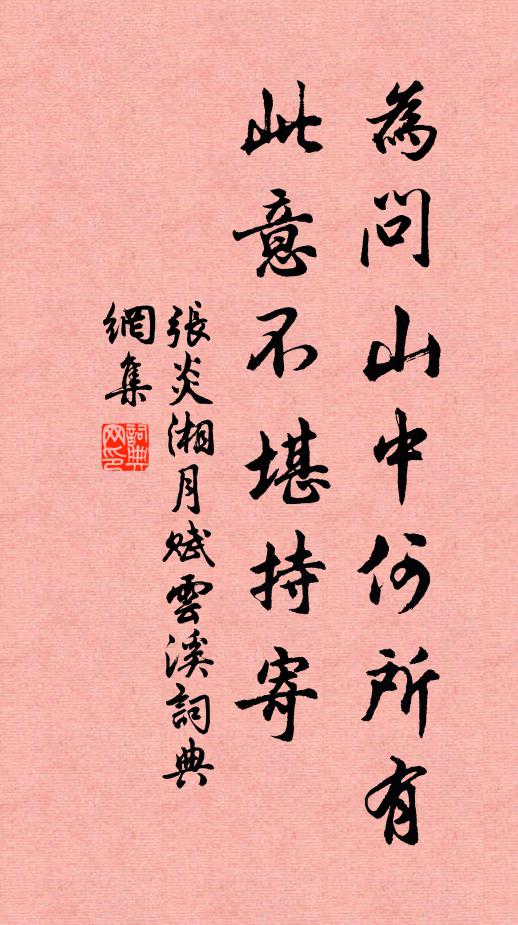 為問山中何所有
此意不堪持寄
張炎湘月賦雲溪詞典
網集
詞典
网印